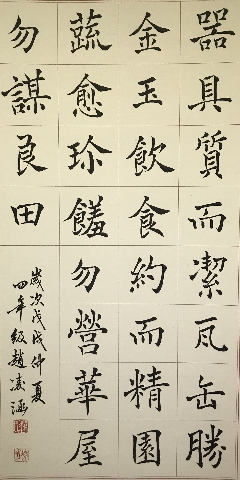 器具質而潔瓦缶勝
金玉飲食約而精園
蔬愈珍饈勿營華屋
勿謀良田
歲次戊戌仲夏
四年級趙凌涵